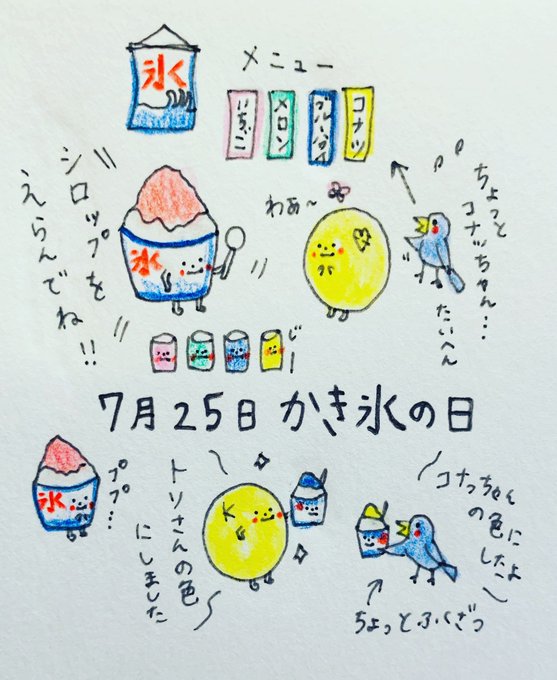 氷
メニュー
いちご
メロン
ブルーハワイ
コナツ
シロップを
えらんでね!!
氷
わぁ〜
ちょっと
コナツちゃん…
たいへん
じー
7月25日 かき氷の日
氷
ププ…
トリさんの色
にしました
コナっちゃん
の色に
したよ
ちょっとふくざつ